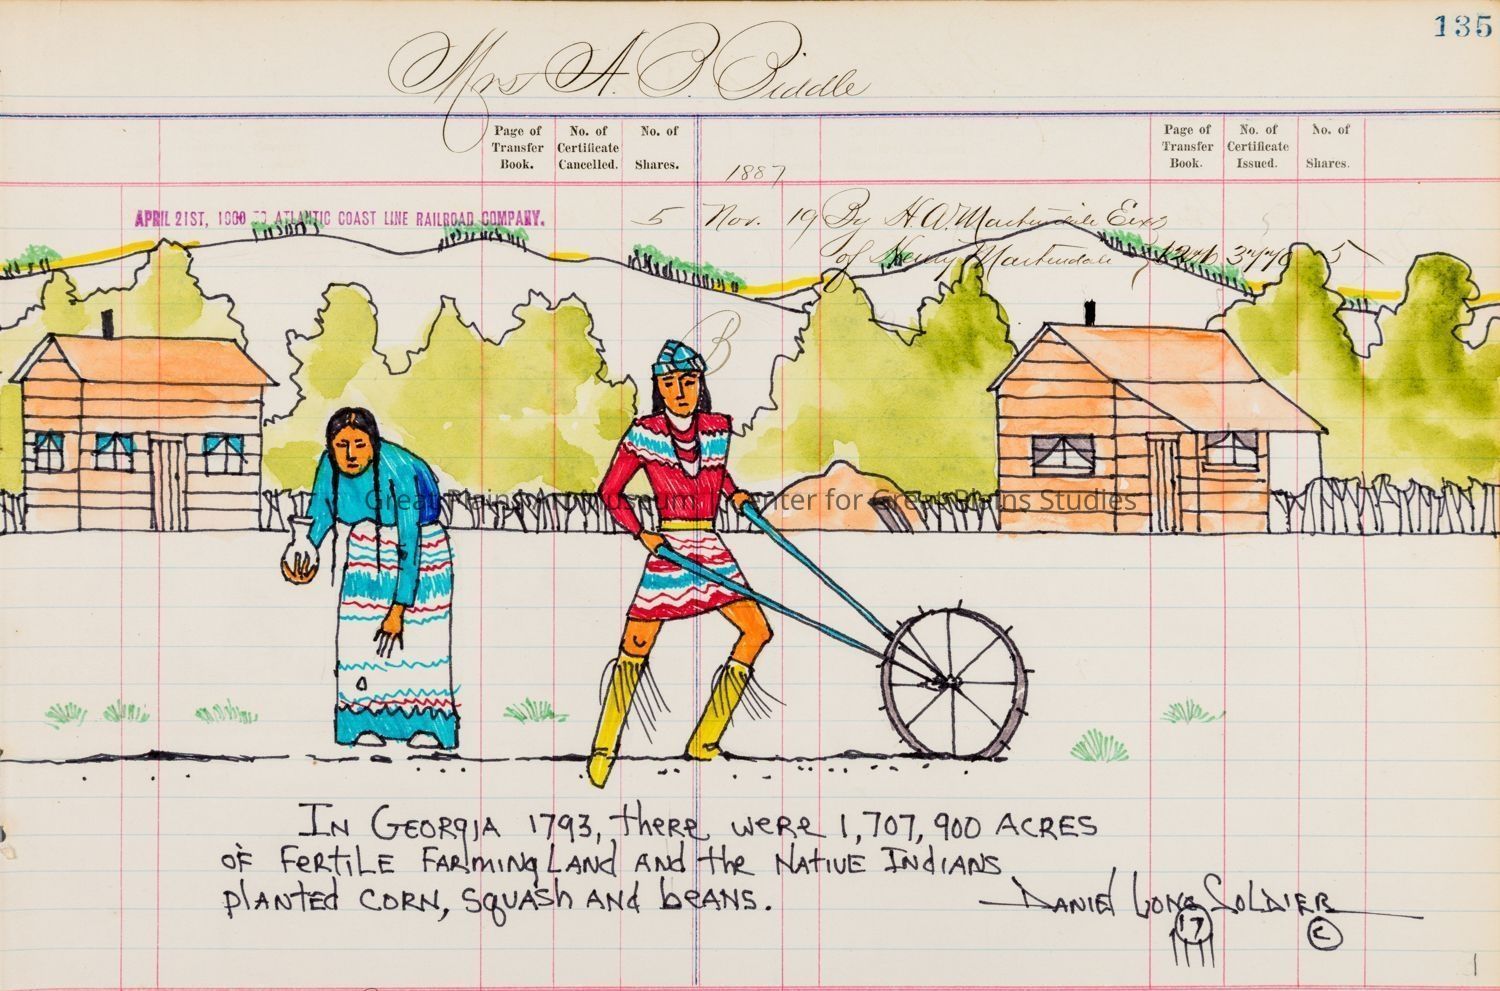 135
Mrs A. B. Biddle
Page of Transfer Book.
No. of Certificate Cancelled.
No. of Shares.
Page of Transfer Book.
No. of Certificate Issued.
No. of Shares.
1887
APRIL 21ST, TO ATLANTIC COAST LINE RAILROAD COMPANY.
5 Nov. 19 By H. A. Martindale Exr
of Henry Martindale 5
B
Great Plains Art Museum, Center for Great Plains Studies
IN GEORGIA 1793, there were 1,707,900 ACRES
OF FERTILE FARMING LAND AND the NATIVE INDIANS
PLANTED CORN, SQUASH AND beANS.
DANIEL LONG SOLDIER
17
C
1